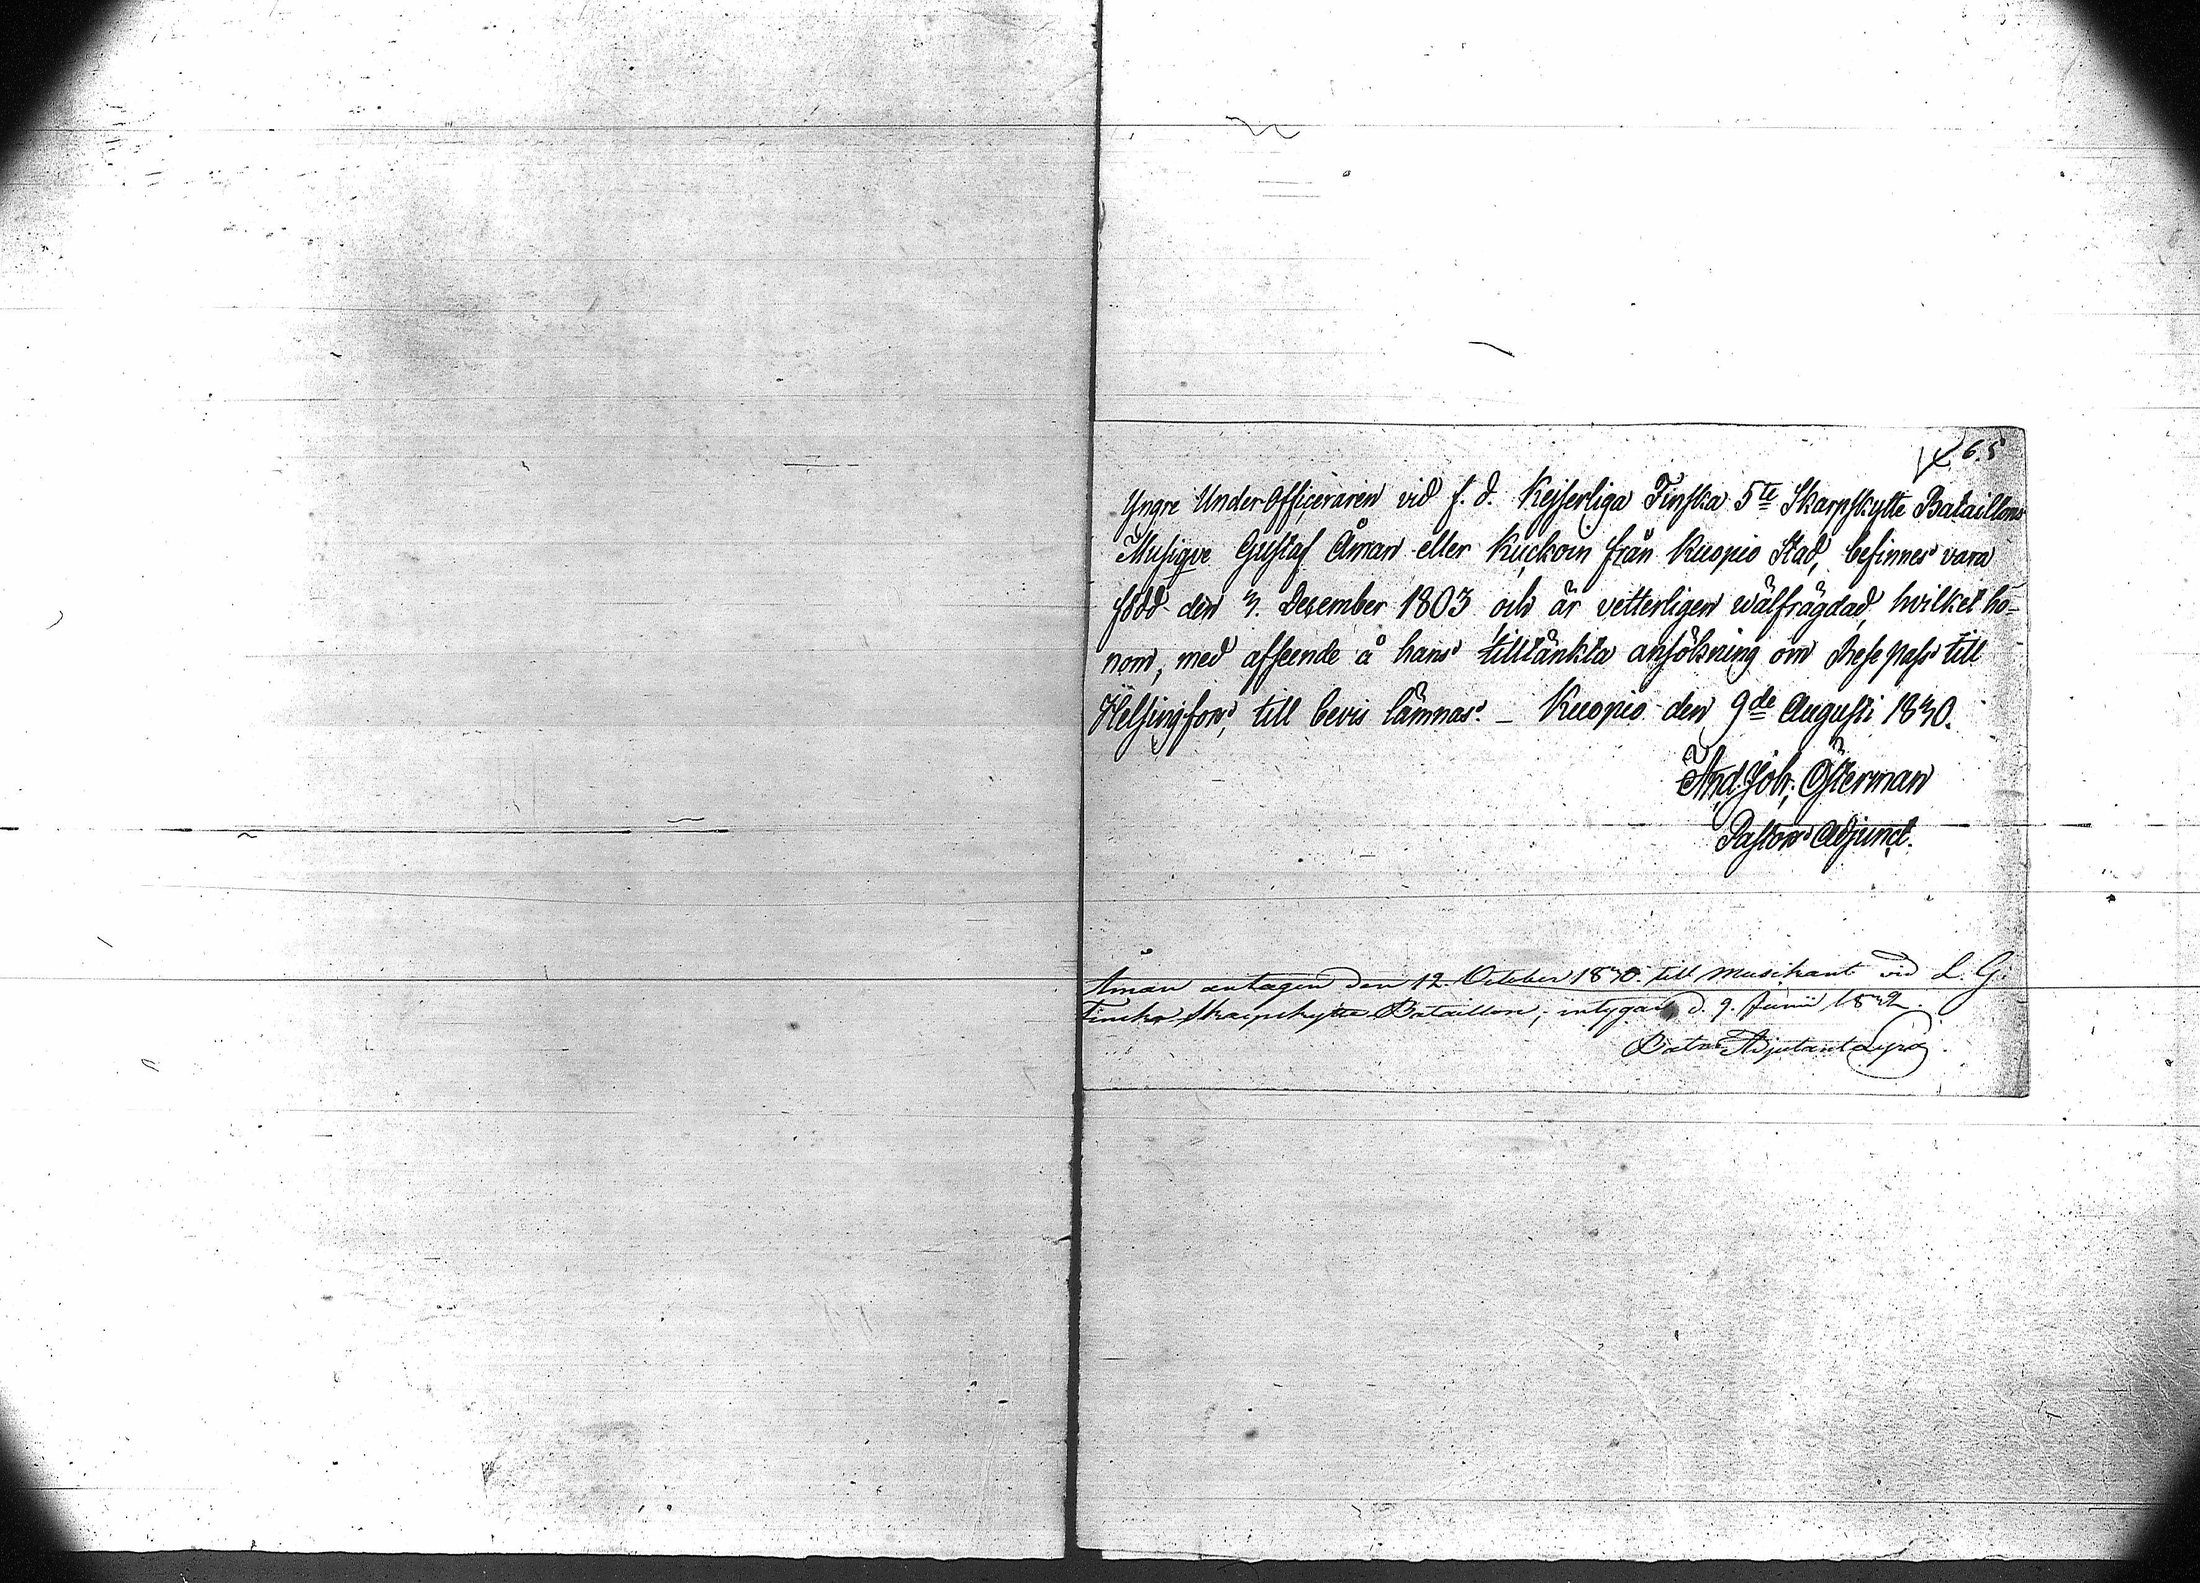 65
Yngre Under-Officeraren vid f. d. Kejserliga Finska 5te Skarpskytte Bataillons
Musique Gustaf Åman eller Kuckoin från Kuopio Stad, befinnes vara
född den 3. December 1803 och är vetterligen wälfrägdad, hvilket ho-
nom, med afseende å hans tilltänkta ansökning om Resepass till
Helsingfors, till bevis lämnas. _ Kuopio den 9de Augusti 1830.
And. Joh. Österman
Pastors Adjunct.
Åman antagen den 12. October 1830 till Musikant vid L. G.
Finska Skarpskytte Bataillon, intygar d. 9. Junii 1832.
Batns Adjutant